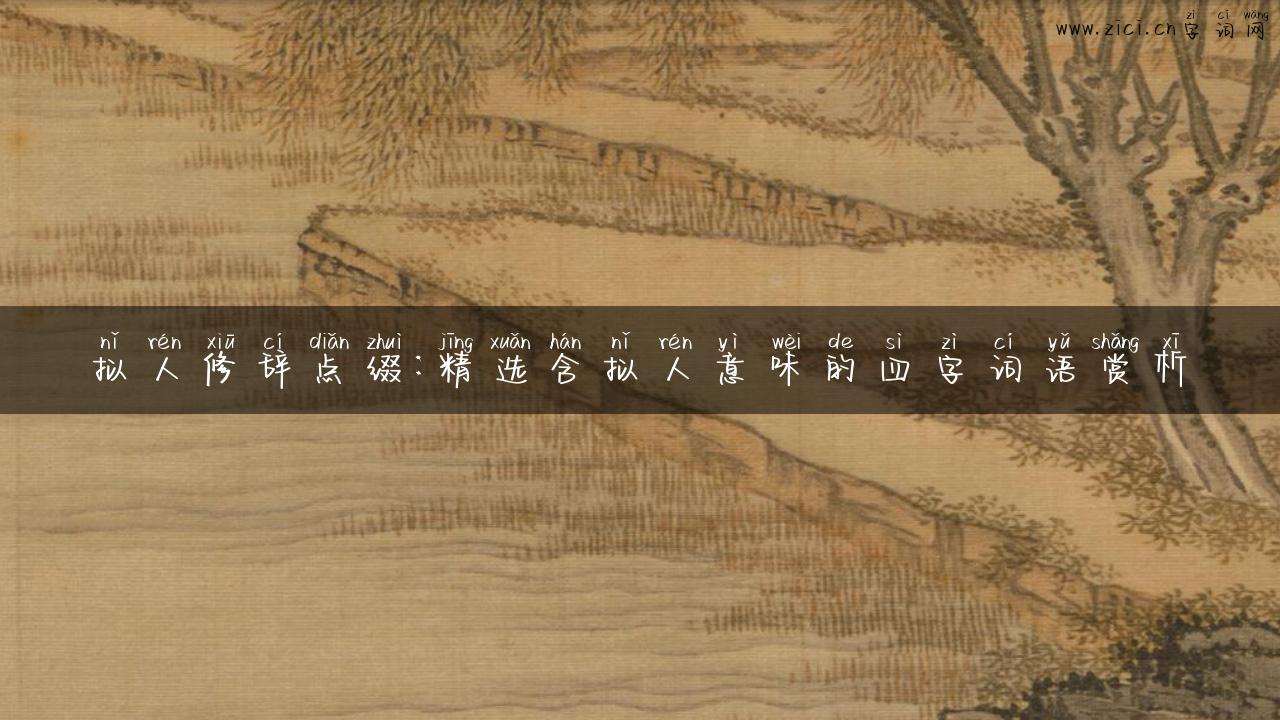 zì cí wǎng
www.zici.cn字词网
nǐ rén xiū cí diǎn zhuì jīng xuǎn hán nǐ rén yì wèi de sì zì cí yǔ shǎng xī
拟人修辞点缀:精选含拟人意味的四字词语赏析